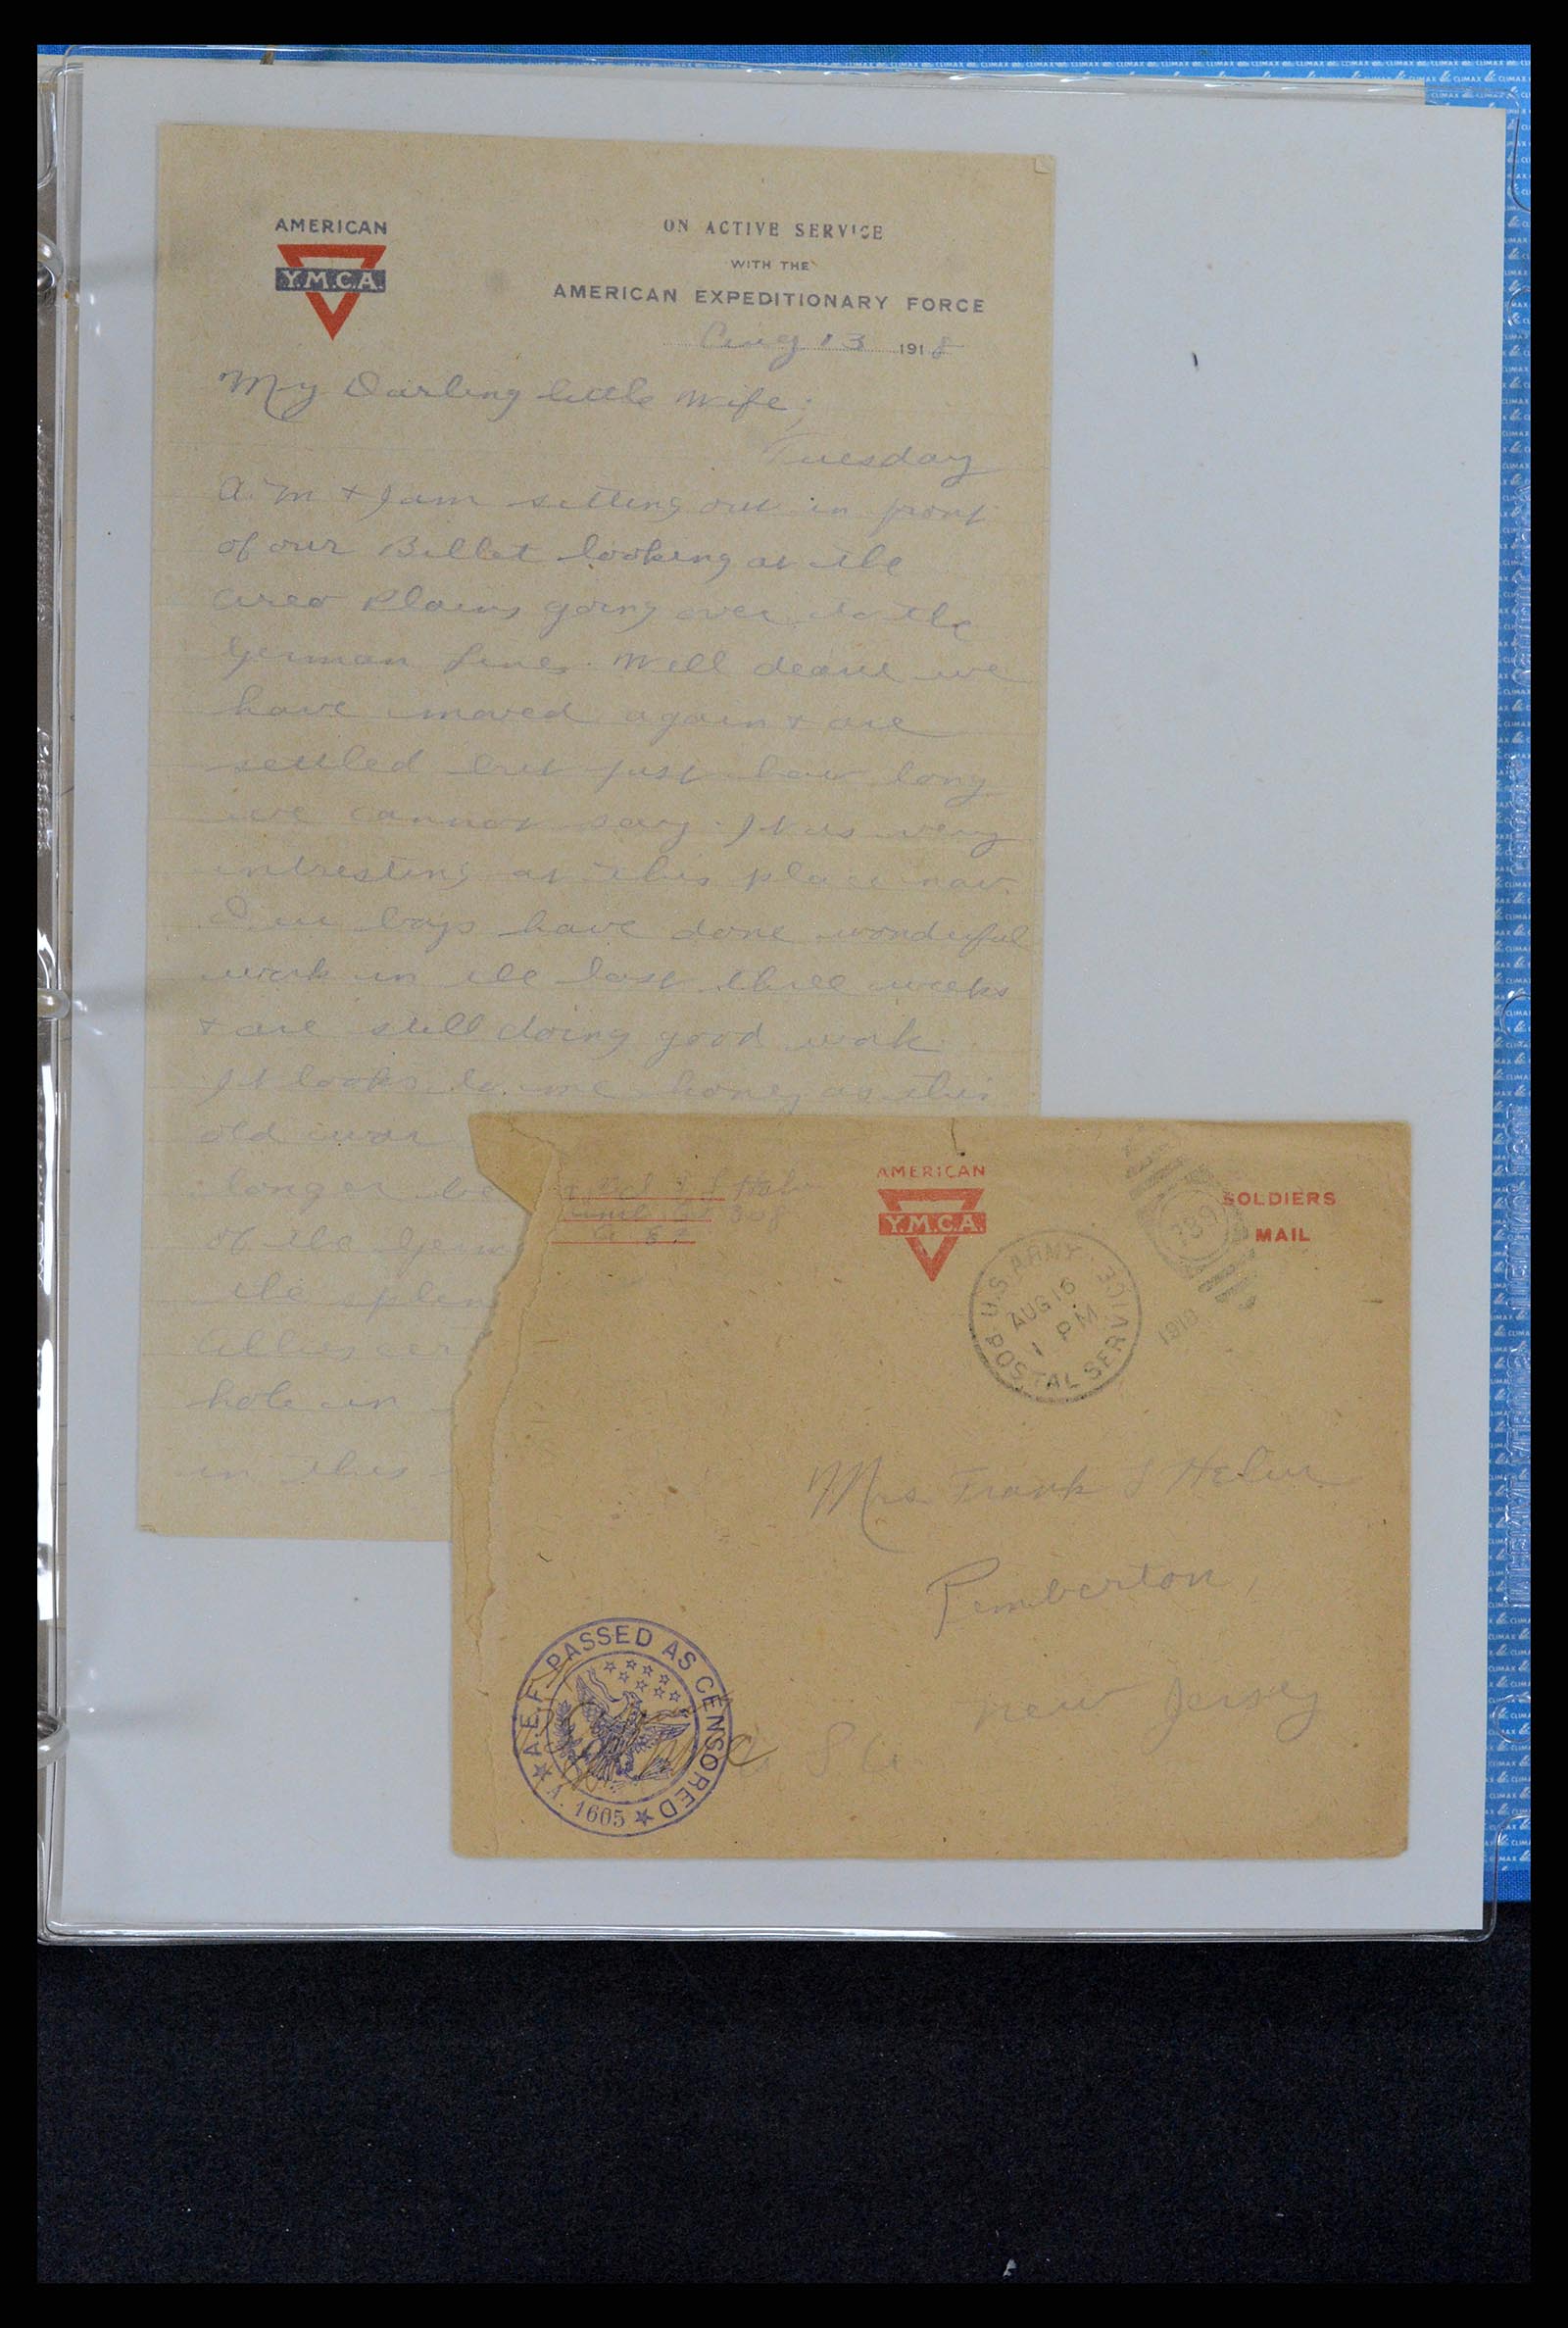 AMERICAN
Y.M.C.A.
ON ACTIVE SERVICE
WITH THE
AMERICAN EXPEDITIONARY FORCE
Aug 13 1918
My Darling little Wife;
Tuesday
A.M + I am sitting out in front
of our Billet looking at the
areo Plains going over to the
German Lines. Well dearie we
have moved again + are
settled but just how long
we cannot say. It is very
intresting at this place now.
Our boys have done wonderful
work in the last three weeks
+ are still doing good work
It looks to me honey as this
old war
longer be
of the Germ
the splen
Allies cer
hole in
in this
308
AMERICAN
Y.M.C.A.
SOLDIERS
MAIL
U.S. ARMY POSTAL SERVICE
AUG 16
1 PM
1918
Mrs Frank S Helm
Pemberton,
New Jersey
A.E.F. PASSED AS CENSORED
A. 1605